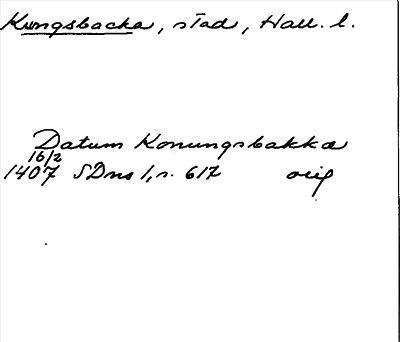 Kungsbacka, stad, Hall. l.
Datum Konungsbakka
16/2
1407 SDns 1, s. 617 orig